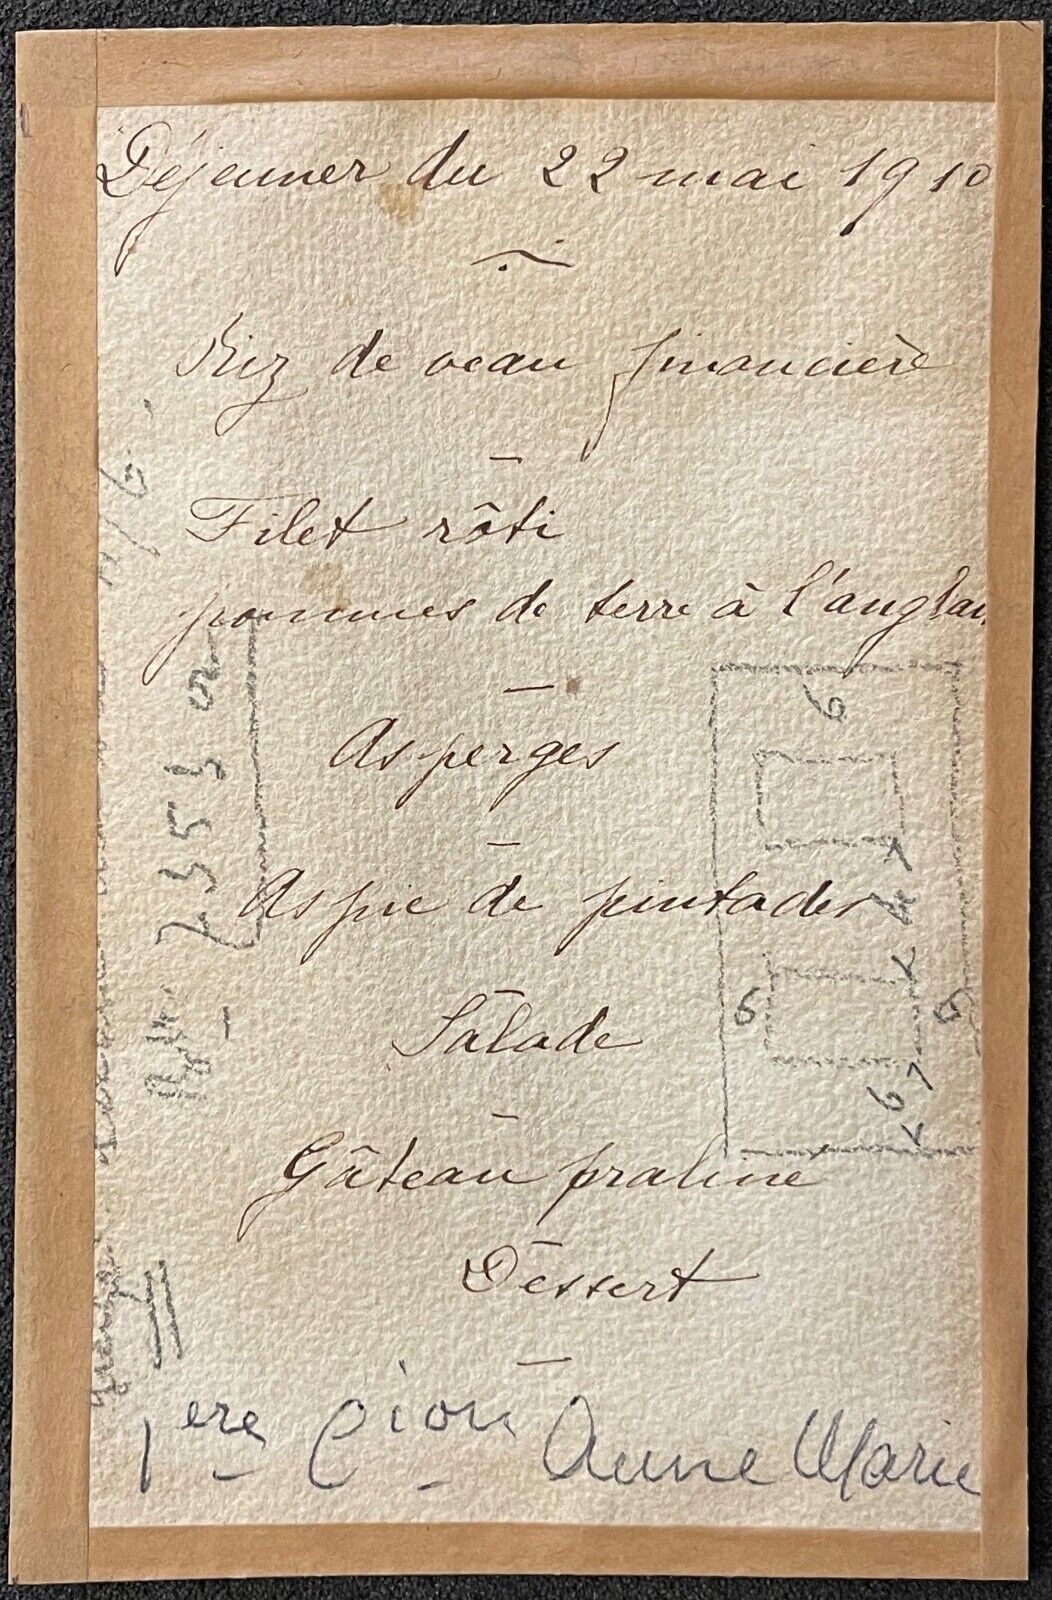 Déjeuner du 22 mai 1910
Riz de veau financière
Filet rôti
pommes de terre à l'anglai
Asperges
Aspic de pintades
Salade
Gâteau praline
Dessert
1ere Cion Anne Marie